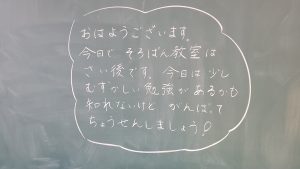 おはようございます。
今日で そろばん教室は
さい後です。今日は 少し
むずかしい勉強があるかも
知れないけど がんばって
ちょうせんしましょう!